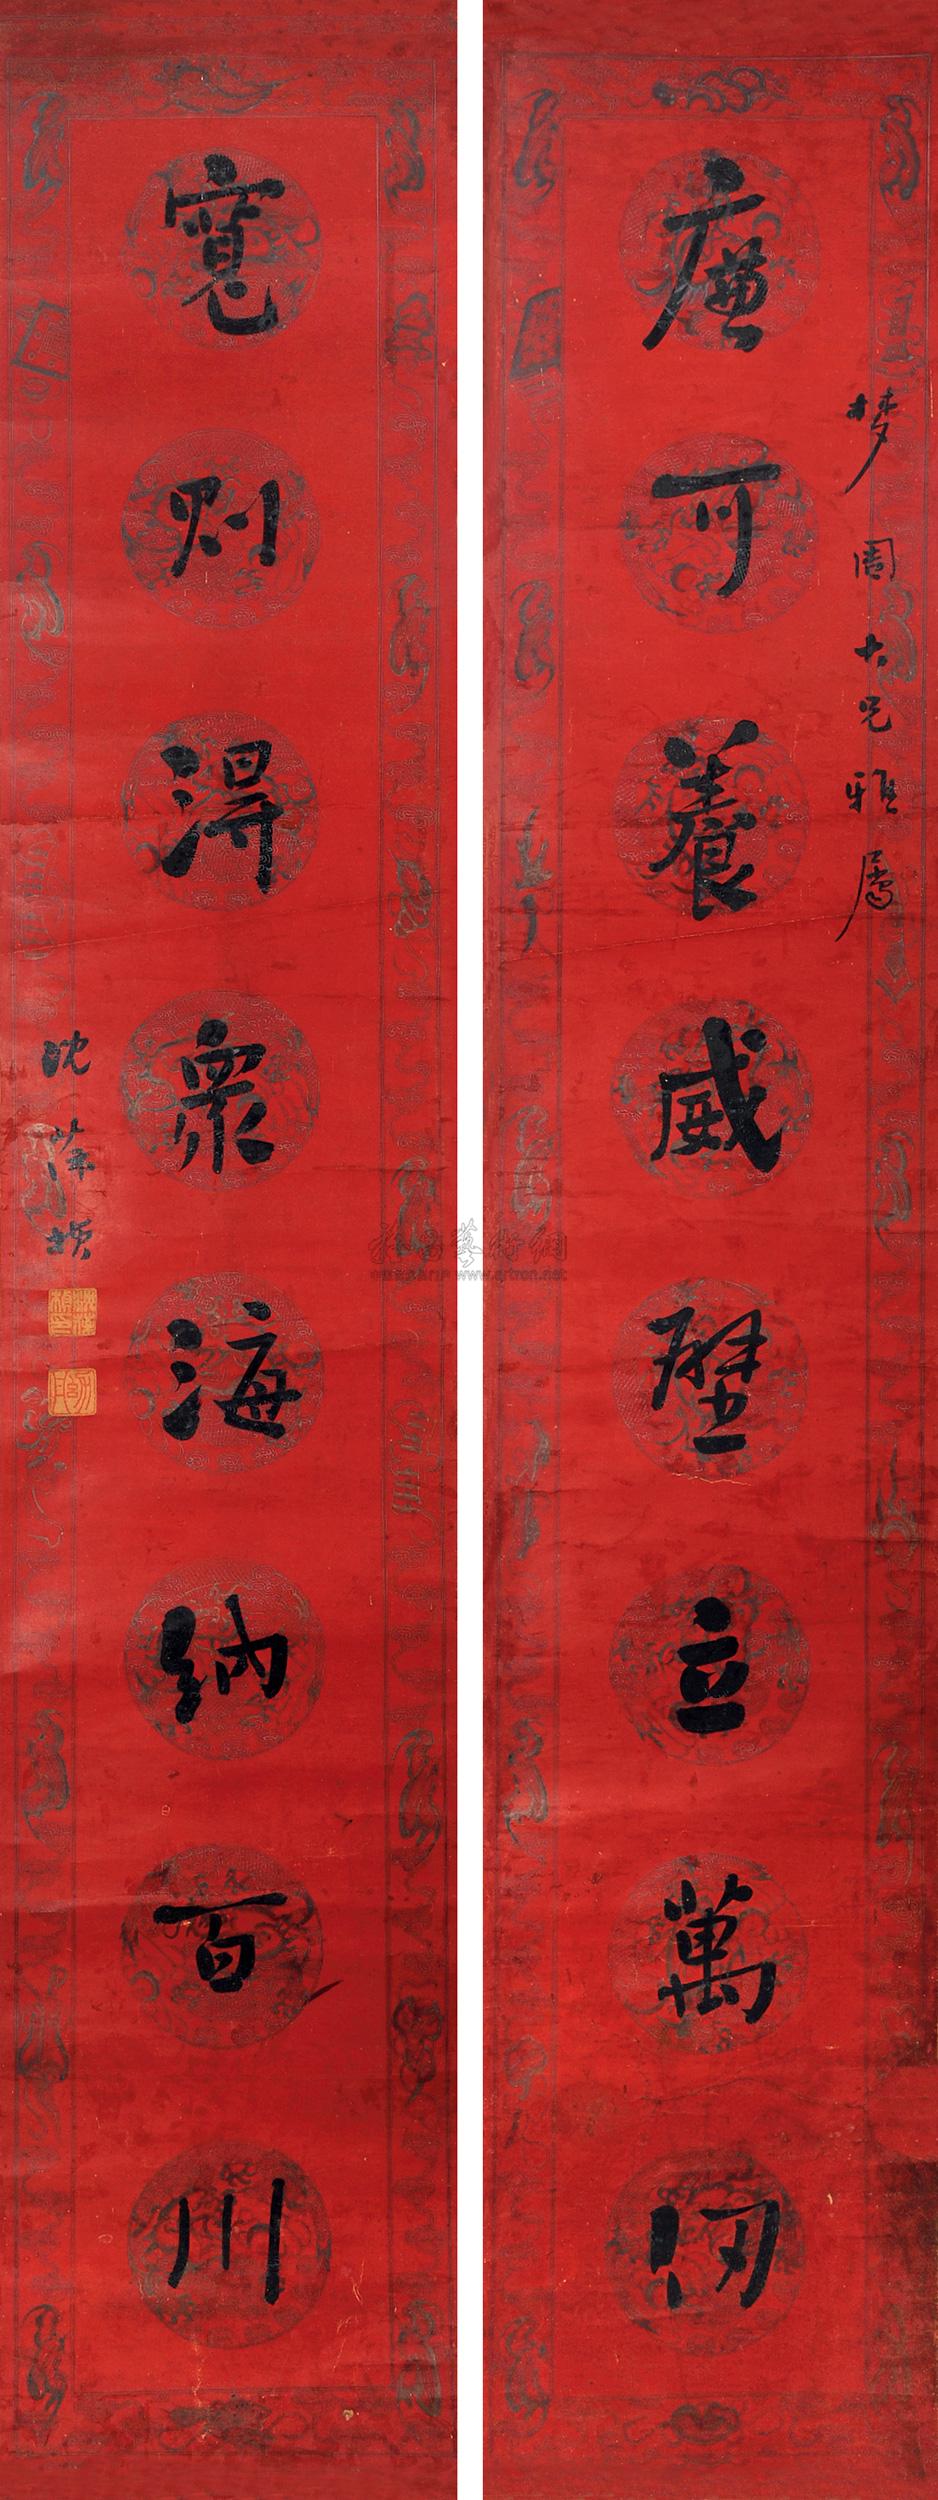 廉可養威壁立萬仞
梦周大兄雅屬
寬則得衆海納百川
沈葆楨
www.artron.net